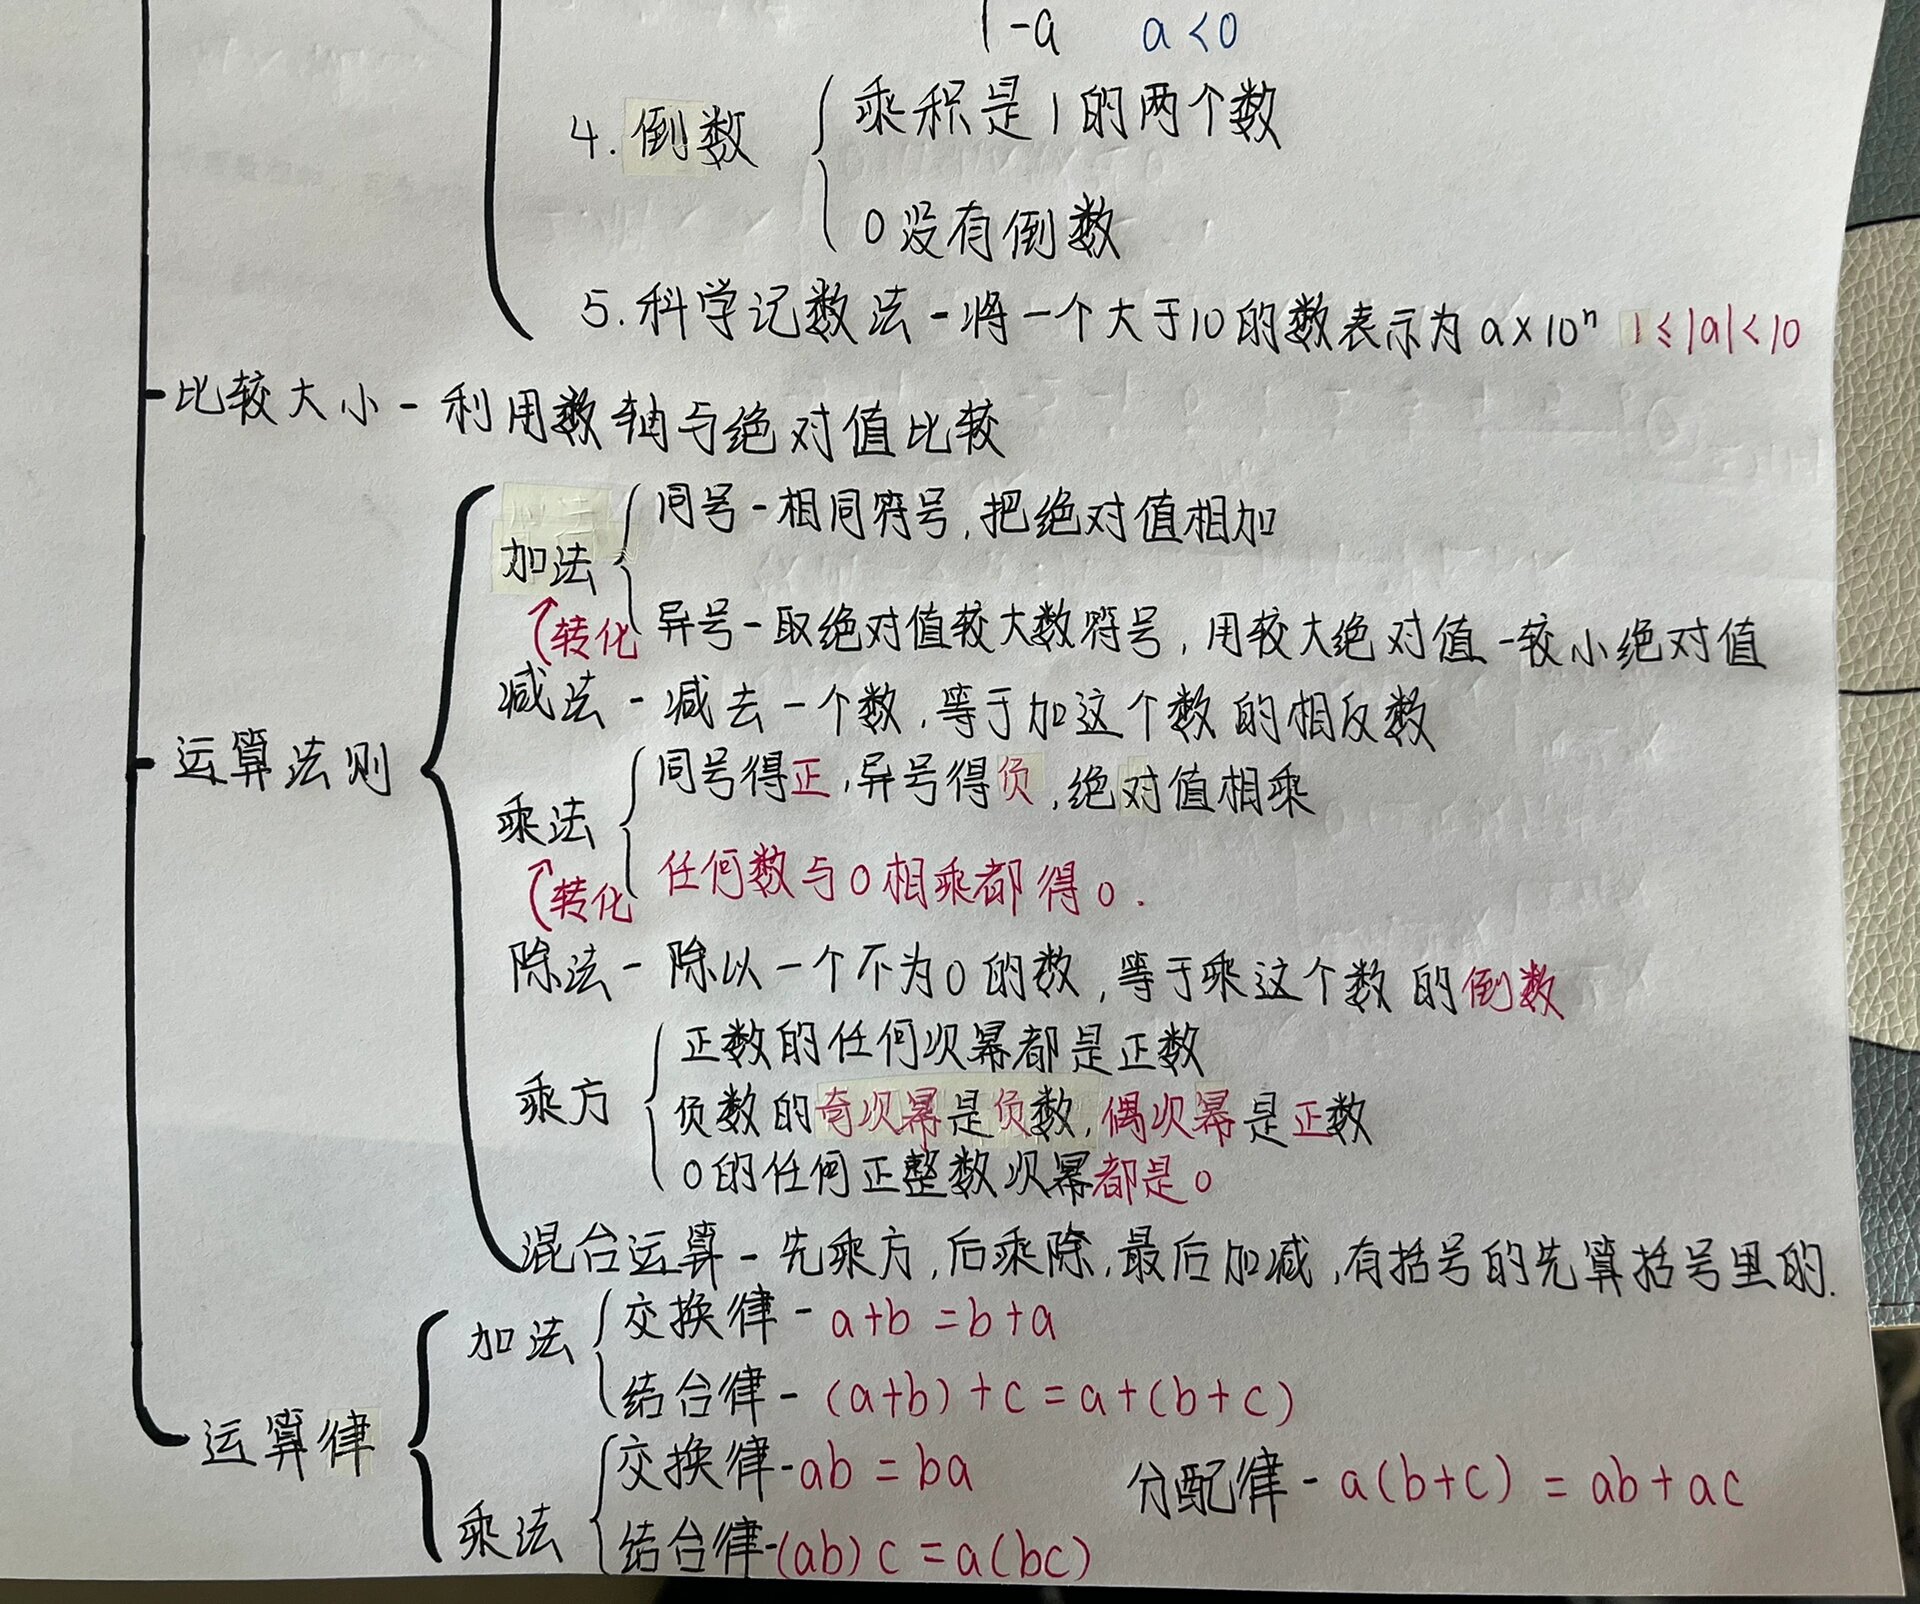 -a a<0
4.倒数
乘积是1的两个数
0没有倒数
5.科学记数法-将一个大于10的数表示为a×10ⁿ 1≤|a|<10
比较大小-利用数轴与绝对值比较
运算法则
加法
同号-相同符号,把绝对值相加
异号-取绝对值较大数符号,用较大绝对值-较小绝对值
转化
减法-减去一个数,等于加这个数的相反数
乘法
同号得正,异号得负,绝对值相乘
任何数与0相乘都得0.
转化
除法-除以一个不为0的数,等于乘这个数的倒数
乘方
正数的任何次幂都是正数
负数的奇次幂是负数,偶次幂是正数
0的任何正整数次幂都是0
混合运算-先乘方,后乘除,最后加减,有括号的先算括号里的.
运算律
加法
交换律-a+b=b+a
结合律-(a+b)+c=a+(b+c)
乘法
交换律-ab=ba
结合律-(ab)c=a(bc)
分配律-a(b+c)=ab+ac